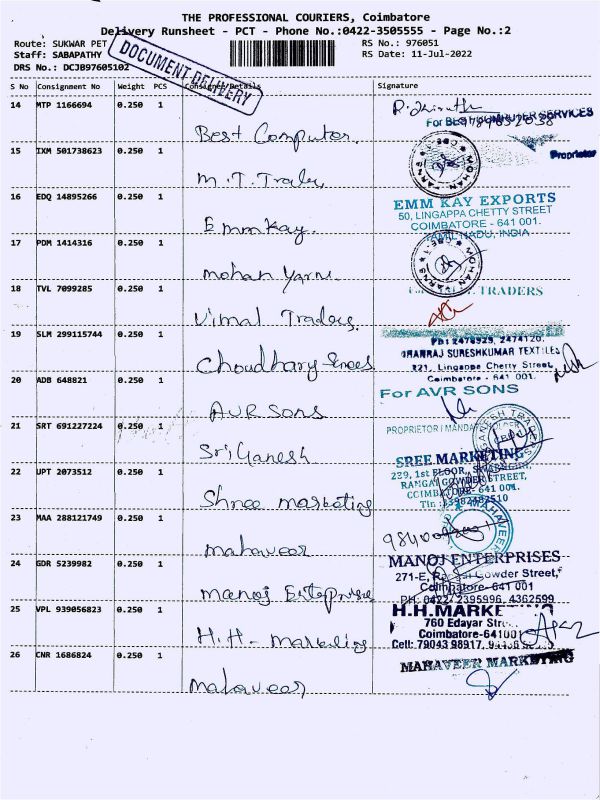 THE PROFESSIONAL COURIERS, Coimbatore
Delivery Runsheet - PCT - Phone No.:0422-3505555 - Page No.:2
Route: SUKWAR PET
RS No.: 976051
Staff: SABAPATHY
RS Date: 11-Jul-2022
DRS No.: DCJB97605102
DOCUMENT DELIVERY
S No Consignment No Weight PCS Consignee/Details Signature
14 MTP 1166694 0.250 1
Best Computer.
15 IXM 501738623 0.250 1
Proprietor
M.T. Trader
16 EDQ 14895266 0.250 1
EMM KAY EXPORTS
50, LINGAPPA CHETTY STREET
COIMBATORE - 641 001.
TAMIL NADU, INDIA
Emmkay.
17 PDM 1414316 0.250 1
MOHAN YARNS
mohan yarns.
18 TVL 7099285 0.250 1
TRADERS
Vimal Traders.
19 SLM 299115744 0.250 1
PH: 2478929, 2474120.
DHANRAJ SURESHKUMAR TEXTILES
221, Lingappa Chetty Street,
Coimbatore - 641 001.
Choudhary Shrees
20 ADB 648821 0.250 1
For AVR SONS
AVR Sons
21 SRT 691227224 0.250 1
PROPRIETOR / MANDATE HOLDER
Sri Ganesh
22 UPT 2073512 0.250 1
SREE MARKETING
RANGAI GOWDER STREET,
COIMBATORE - 641 001.
Shree marketing
23 MAA 288121749 0.250 1
mahaveer
24 GDR 5239982 0.250 1
MANOJ ENTERPRISES
271-E, Rangai Gowder Street,
Coimbatore- 641 001
PH: 0422-2395996, 4362599
manoj Enterprise
25 VPL 939056823 0.250 1
H.H.MARKE
760 Edayar Str
Coimbatore-641001
Cell: 79043 98917,
H.H - marketing
26 CNR 1686824 0.250 1
MAHAVEER MARKETING
mahaveer